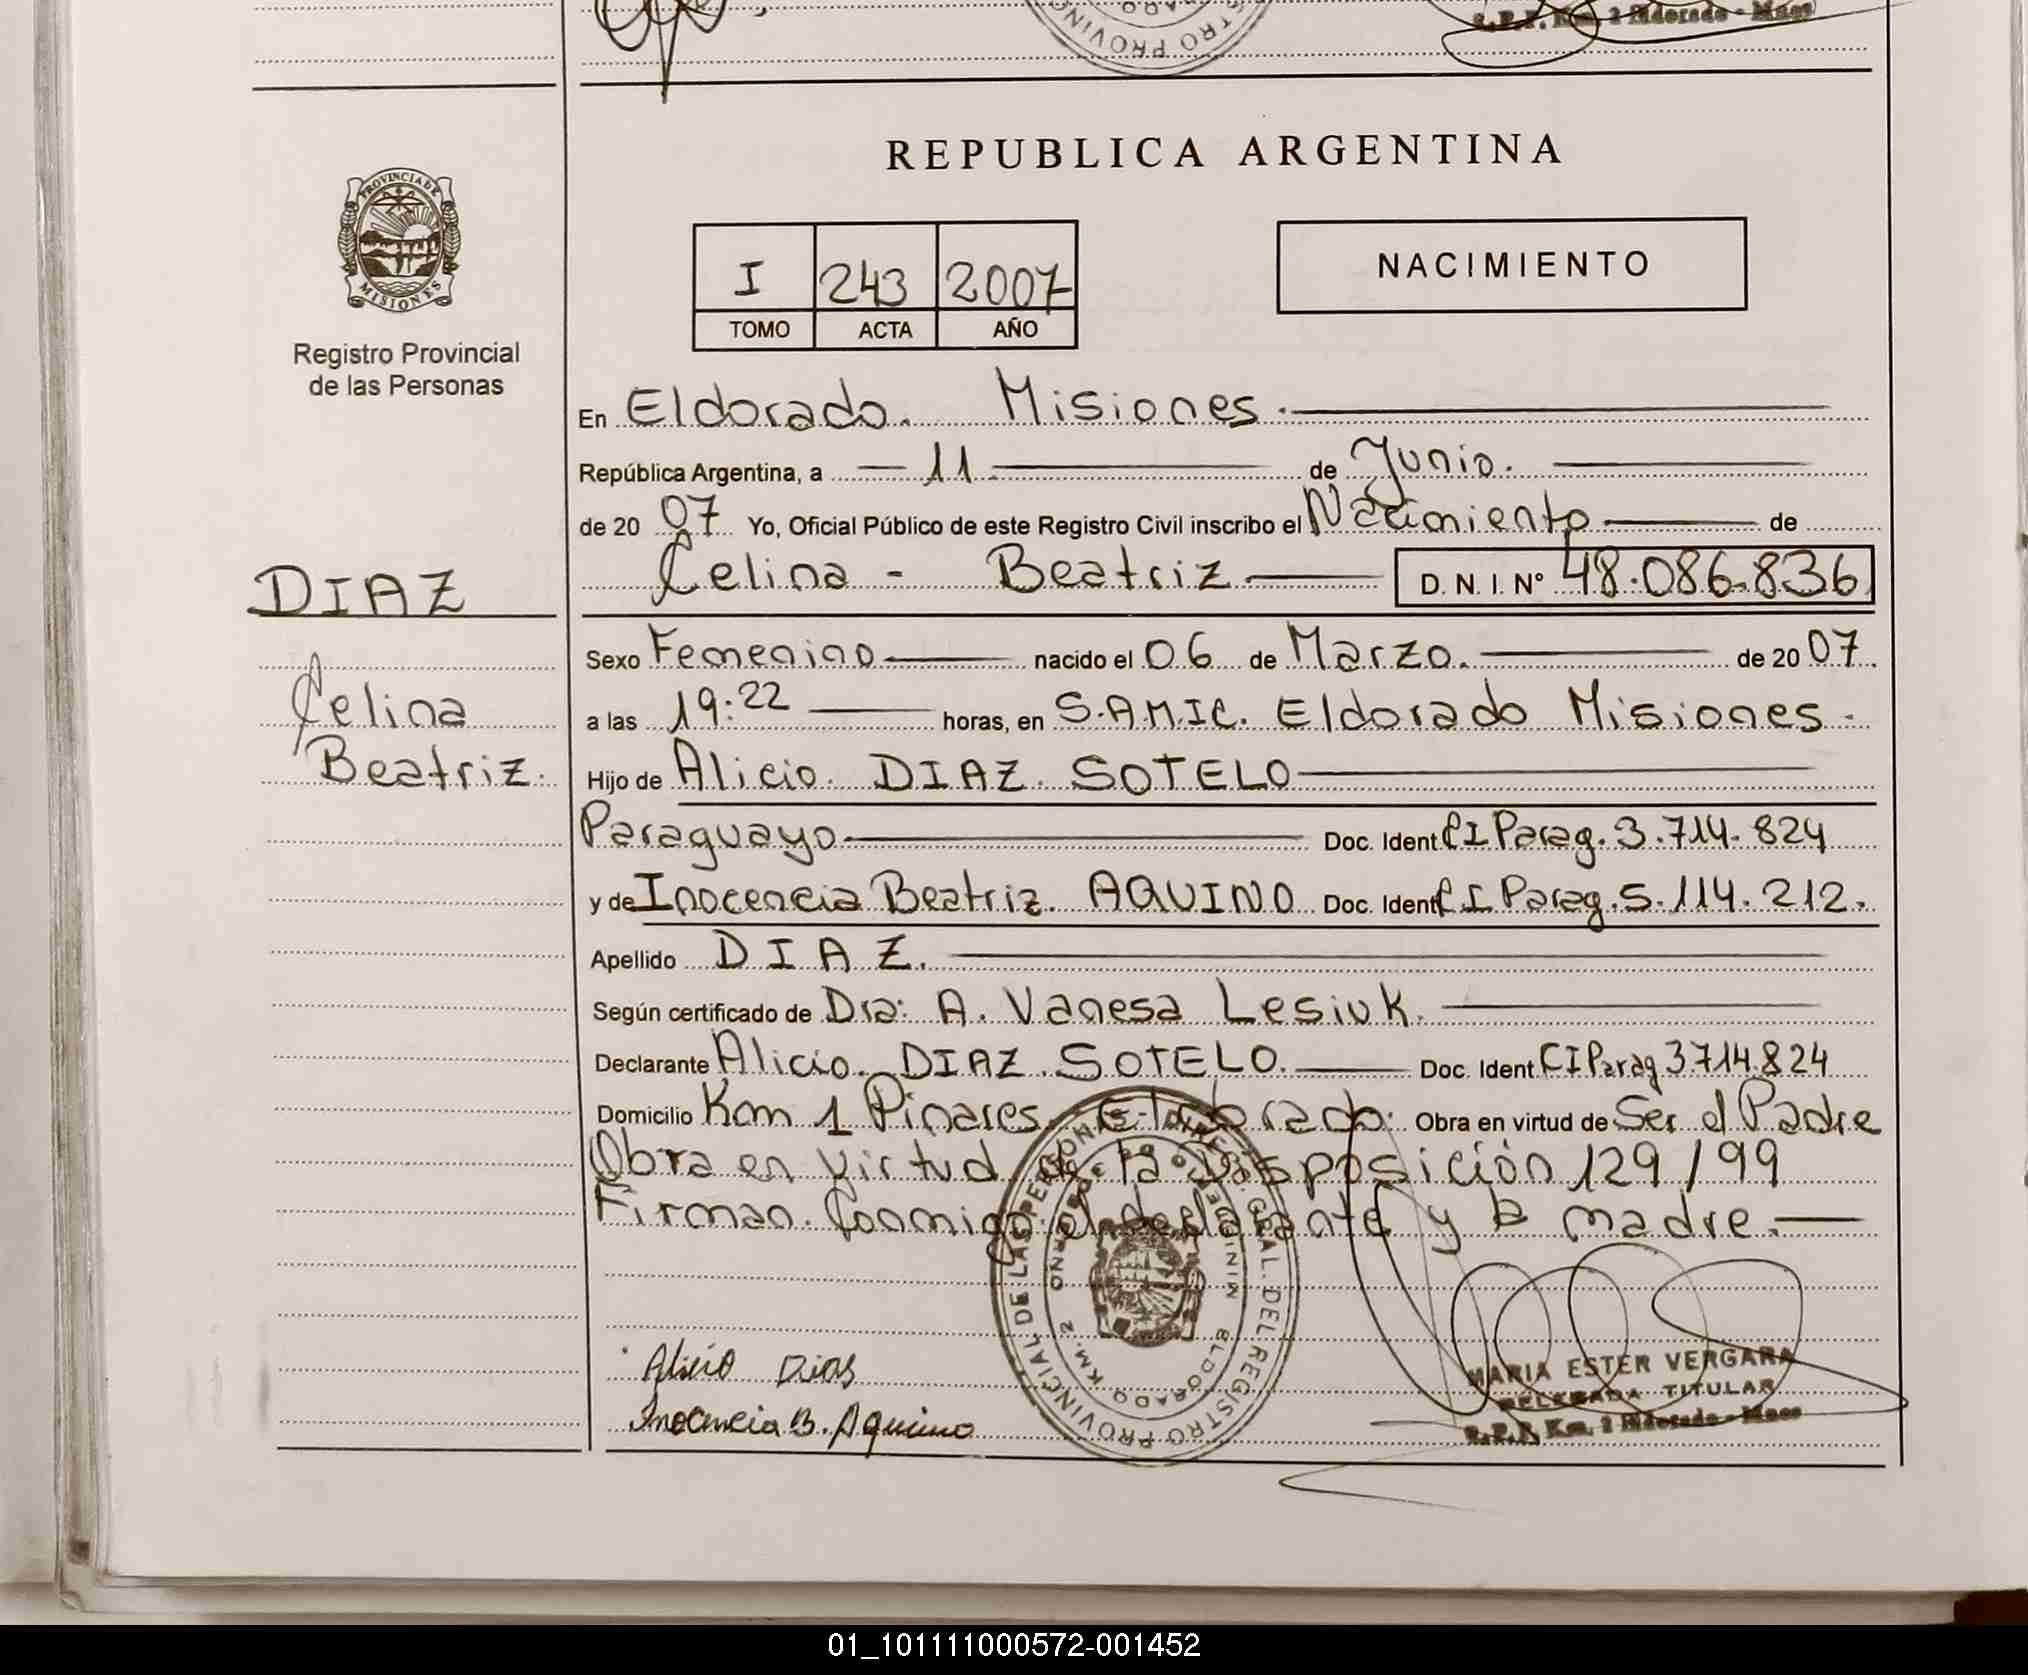 S. P. P. Km. 2 Eldorado - Mnes
REPUBLICA ARGENTINA
PROVINCIA DE MISIONES
Registro Provincial
de las Personas
NACIMIENTO
I 243 2007
TOMO ACTA AÑO
En Eldorado. Misiones.
República Argentina, a 11 de Junio.
de 20 07 Yo, Oficial Público de este Registro Civil inscribo el Nacimiento de
Celina - Beatriz D. N. I. Nº 48.086.836
DIAZ
Celina
Beatriz.
Sexo Femenino nacido el 06 de Marzo. de 20 07.
a las 19:22 horas, en S.A.M.IC. Eldorado Misiones.
Hijo de Alicio. DIAZ. SOTELO
Paraguayo Doc. Ident CI Parag. 3.714.824
y de Inocencia Beatriz. AQUINO Doc. Ident CI Parag. 5.114.212.
Apellido DIAZ.
Según certificado de Dra: A. Vanesa Lesiuk.
Declarante Alicio. DIAZ. SOTELO. Doc. Ident CI Parag 3714.824
Domicilio Km 1 Pinares. Eldorado. Obra en virtud de Ser el Padre
Obra en virtud de la Disposición 129/99
Firman. Conmigo el declarante y la madre.
Alicio Dias
Inocencia B. Aquino
MARIA ESTER VERGARA
DELEGADA TITULAR
R.P.P. Km. 2 Eldorado - Mnes
01_101111000572-001452